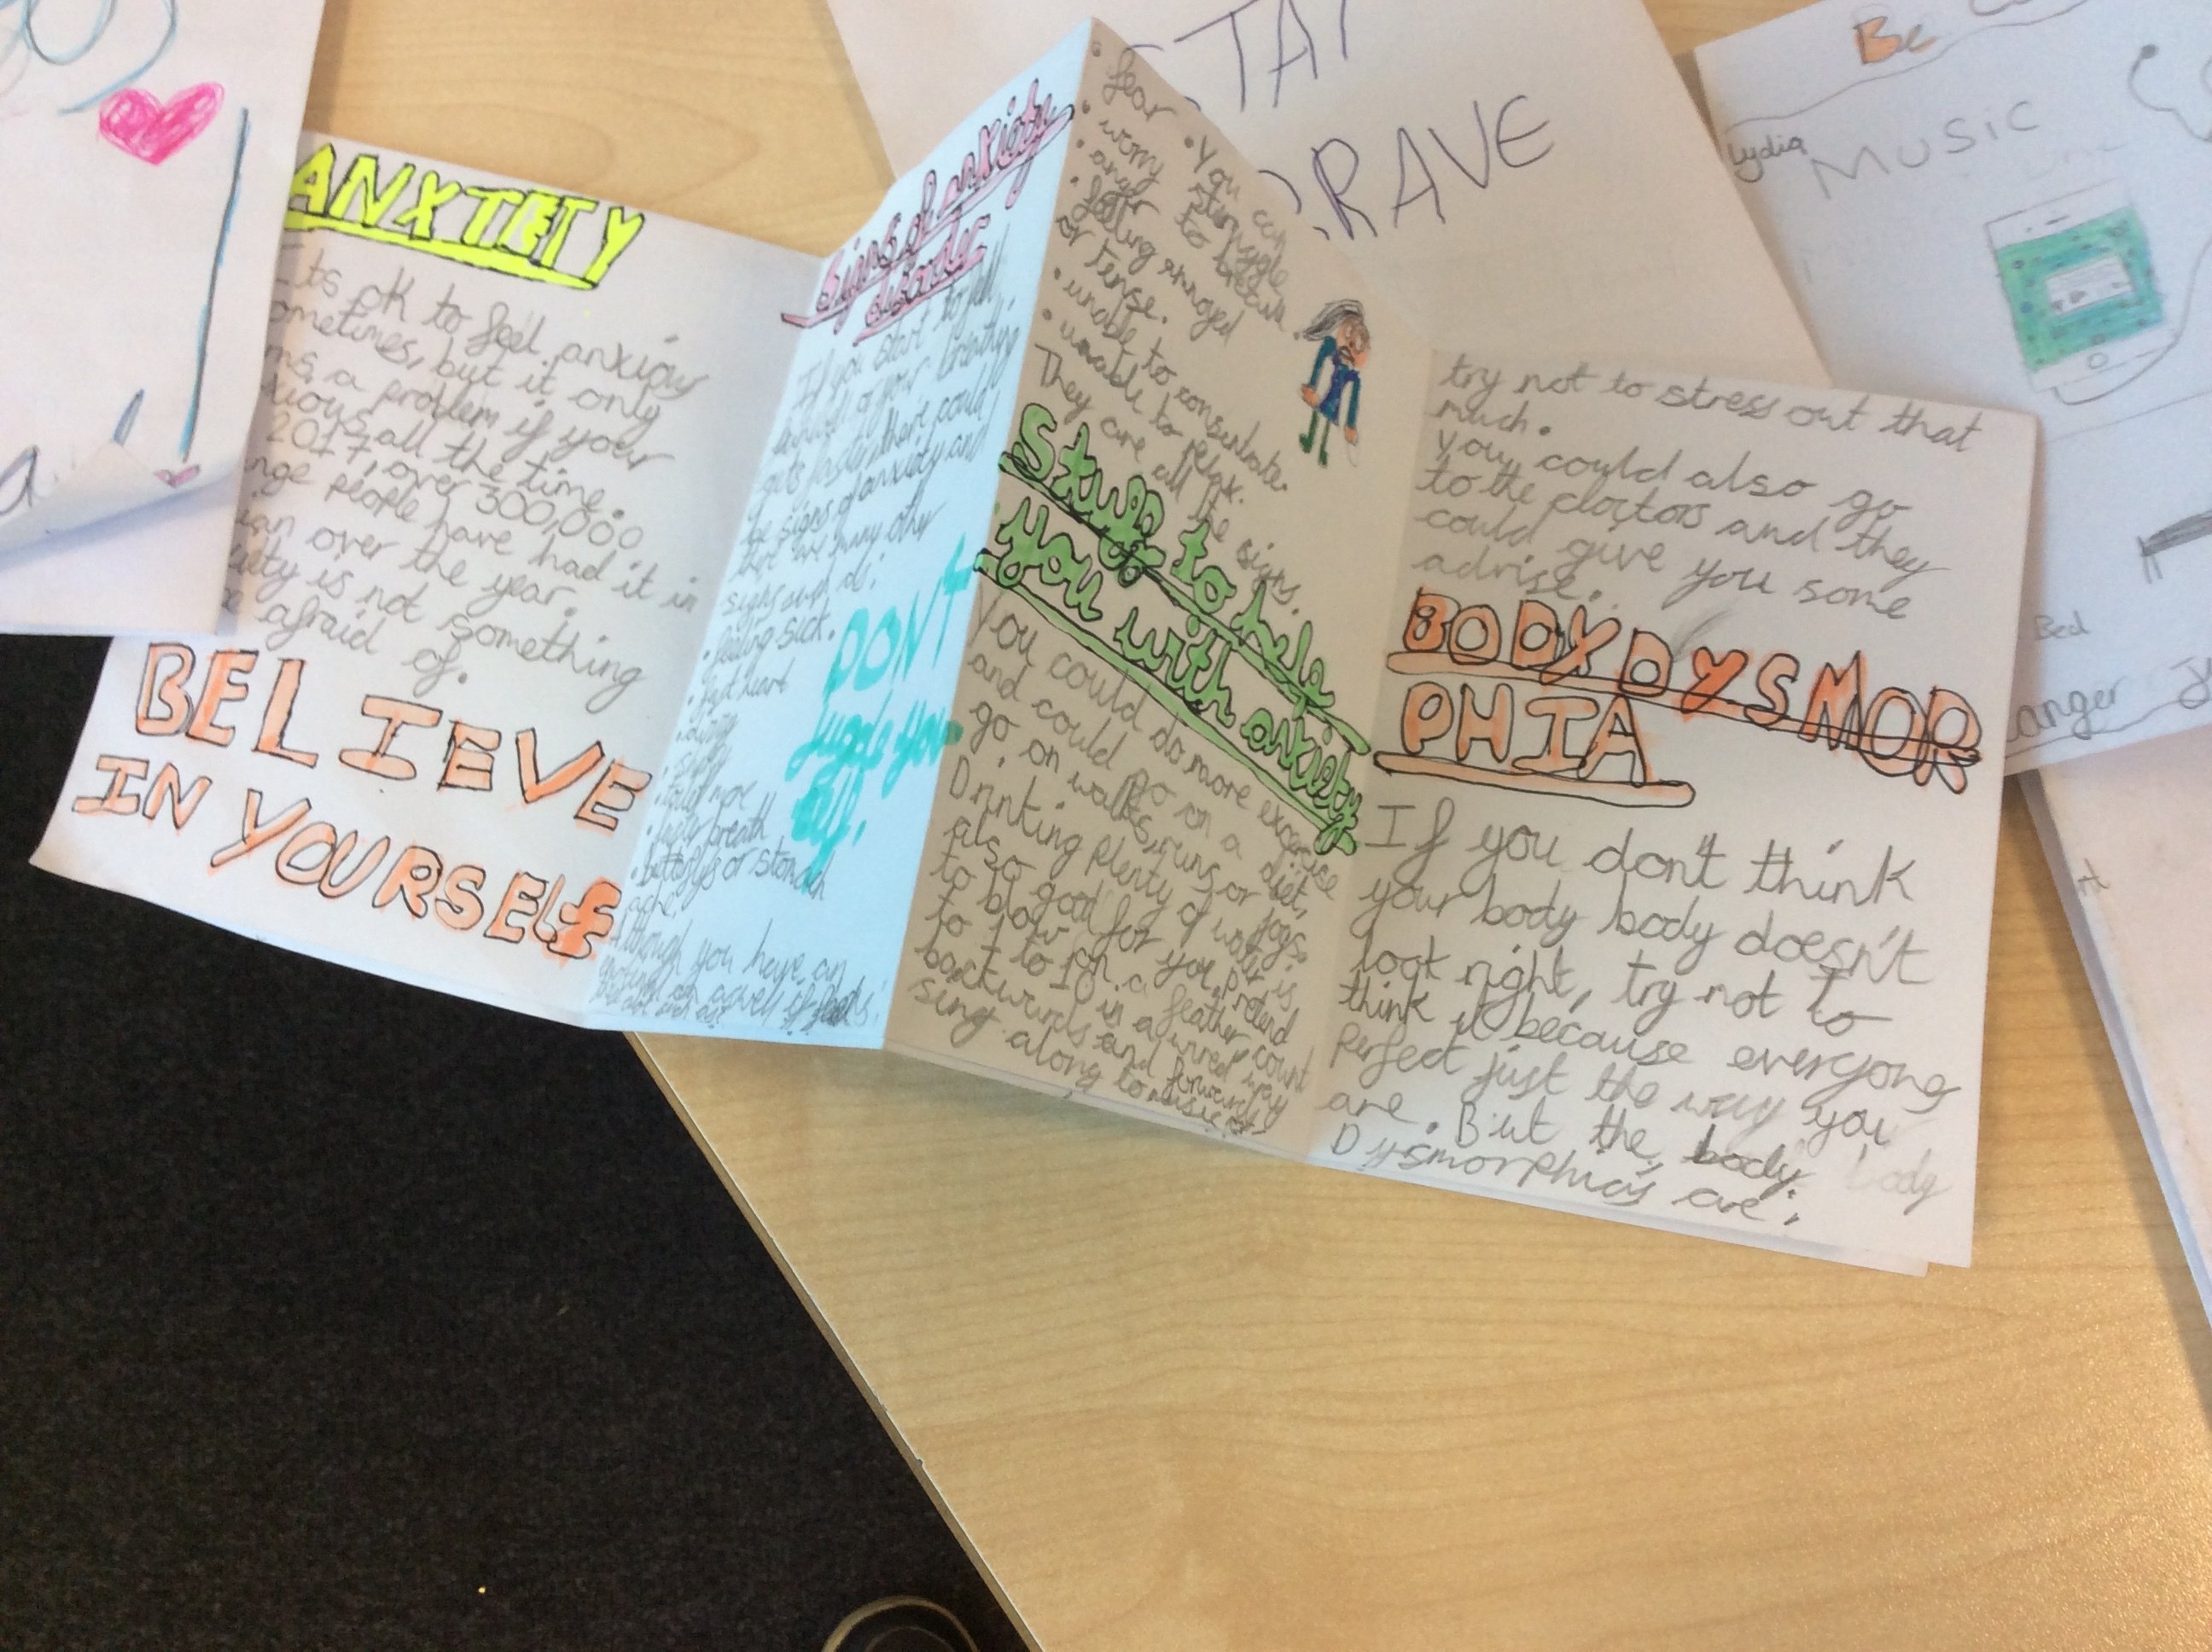 ANXIETY
Its ok to feel anxious
ometimes, but it only
ms a problem if your
xious all the time.
2017, over 300,000
nge people have had it in
an over the year.
iety is not something
e afraid of.
BELIEVE
IN YOURSELF
Signs of anxiety
disorder
If you start to feel
unwell or your breathing
gets faster there could
be signs of anxiety and
there are many other
signs such as:
• feeling sick.
• fast heart
DON'T
juggle you
• butterflys or stomach
ache.
Although you have an
• fear
• worry
• anger
• feeling annoyed
or tense.
• unable to consintrate.
• unable to relax.
They are all the signs.
• You can
struggle
to breath.
Stuff to help
you with anxiety
You could do more excercise
and could go on a diet,
go on walks, runs or jogs.
Drinking plenty of water is
also good for you, pretend
to blow on a feather count
to 1 to 10 in a wired way
backwards and forwards
sing along to music
try not to stress out that
much.
You could also go
to the doctors and they
could give you some
advise.
BODY DYSMOR
PHIA
If you don't think
your body body doesn't
look right, try not to
think it because everyones
perfect just the way you
are. But the body
Dysmorphia's are:
STAY
BRAVE
Be
Lydia
MUSIC
Bed
anger